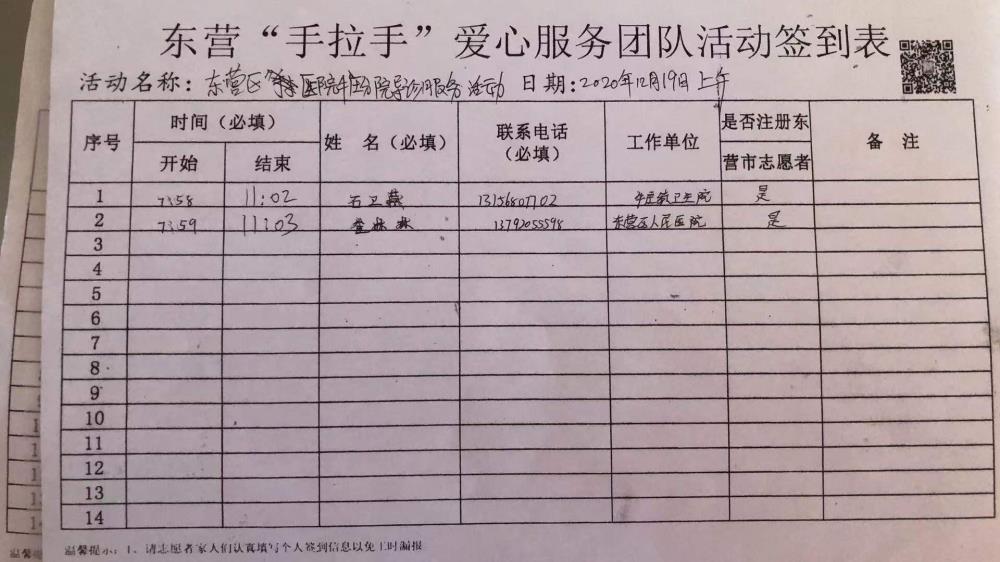 东营“手拉手”爱心服务团队活动签到表
活动名称：东营区 医院 分院导诊服务活动 日期：2020年12月19日上午
序号 时间（必填） 姓 名（必填） 联系电话（必填） 工作单位 是否注册东营市志愿者 备 注
开始 结束
1 7:58 11:02 石卫燕 13156807702 卫生院 是
2 7:59 11:03 13792055598 东营区人民医院 是
3
4
5
6
7
8
9
10
11
12
13
14
温馨提示：1、请志愿者家人们认真填写个人签到信息以免工时漏报